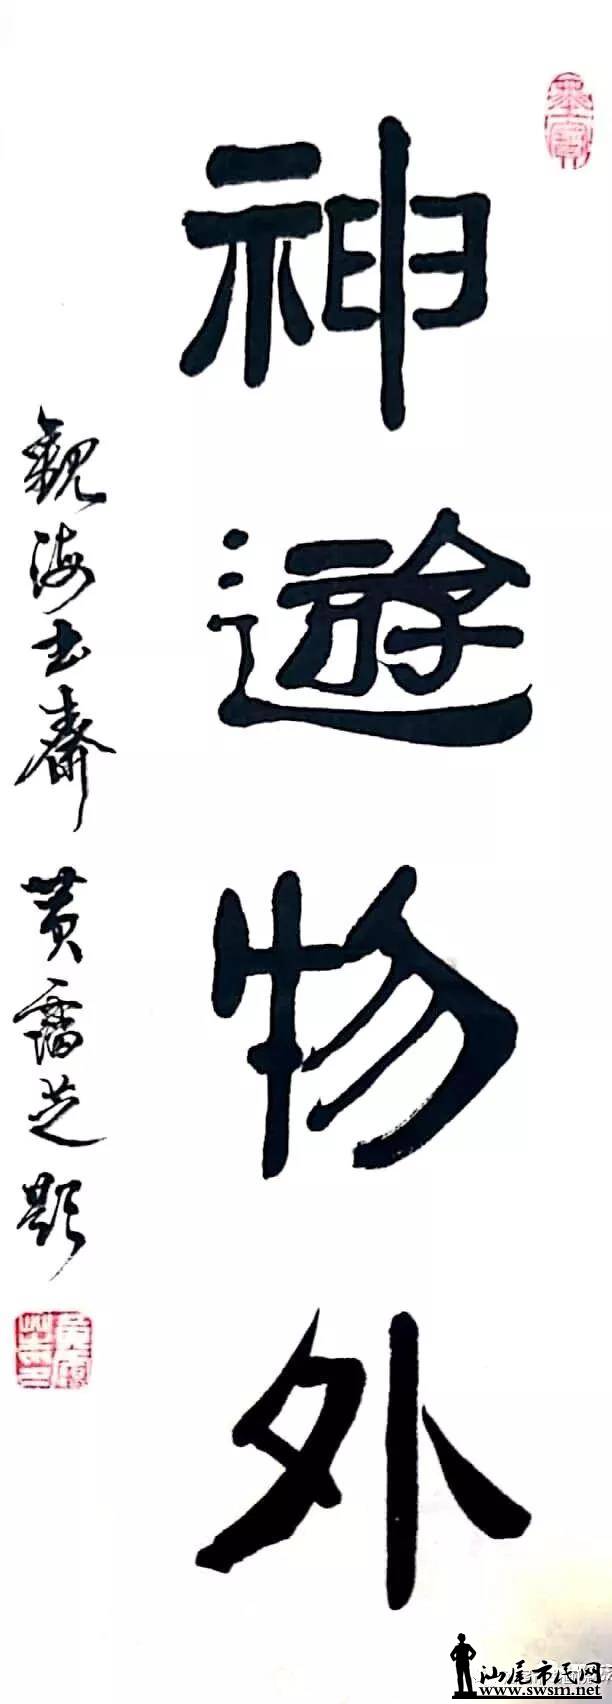 神遊物外
觀海書齋 黄靄芝題
汕尾市民网
www.swsm.net